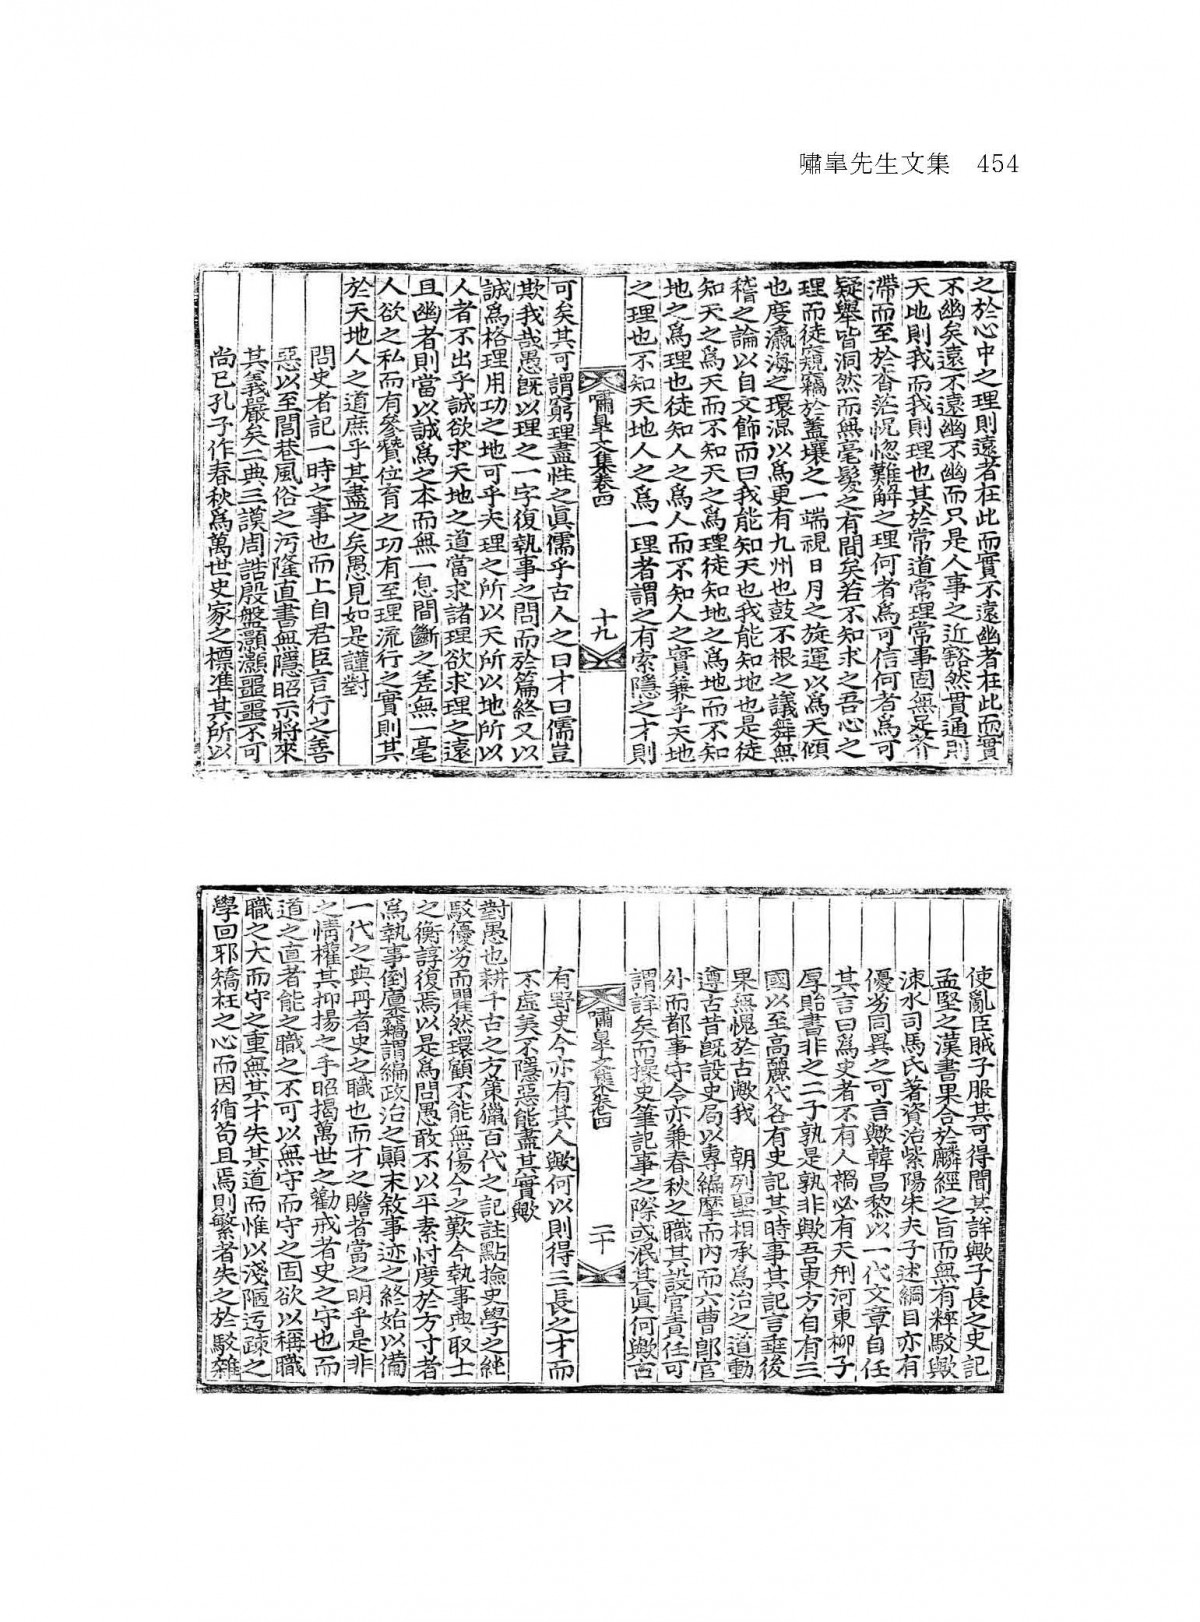 嘯皐先生文集 454
之於心中之理則遠者在此而實不遠幽者在此而實
不幽矣遠不遠幽不幽而只是人事之近豁然貫通則
天地則我而我則理也其於常道常理常事固無芥
滯而至於杳茫怳惚難解之理何者爲可信何者爲可
疑擧皆洞然而無毫髮之有間矣若不知求之吾心之
理而徒窺竊於蓋壤之一端視日月之旋運以爲天傾
也度瀛海之環混以爲更有九州也鼓不根之議舞無
稽之論以自文飾而曰我能知天也我能知地也是徒
知天之爲天而不知天之爲理徒知地之爲地而不知
地之爲理也徒知人之爲人而不知人之實兼乎天地
之理也不知天地人之爲一理者謂之有索隱之才則
嘯皐文集卷四
十九
可矣其可謂窮理盡性之眞儒乎古人之曰才曰儒豈
欺我哉愚旣以理之一字復執事之問而於篇終又以
誠爲格理用功之地可乎夫理之所以天所以地所以
人者不出乎誠欲求天地之道當求諸理欲求理之遠
且幽者則當以誠爲之本而無一息間斷之差無一毫
人欲之私而有參贊位育之功有至理流行之實則其
於天地人之道庶乎其盡之矣愚見如是謹對
問史者記一時之事也而上自君臣言行之善
惡以至閭巷風俗之汚隆直書無隱昭示將來
其義嚴矣二典三謨周誥殷盤灝灝噩噩不可
尚已孔子作春秋爲萬世史家之標準其所以
使亂臣賊子服其可得聞其詳歟子長之史記
孟堅之漢書果合於麟經之旨而無有粹駁歟
涑水司馬氏著資治紫陽朱夫子述綱目亦有
優劣同異之可言歟韓昌黎以一代文章自任
其言曰爲史者不有人禍必有天刑河東柳子
厚貽書非之二子孰是孰非歟吾東方自有三
國以至高麗代各有史記其時事其記言垂後
果無愧於古歟我 朝列聖相承爲治之道動
遵古昔旣設史局以專編摩而內而六曹郎官
外而都事守令亦兼春秋之職其設官責任可
謂詳矣而操史筆記事之際或泯其眞何歟古
嘯皐文集卷四
二十
有野史今亦有其人歟何以則得三長之才而
不虛美不隱惡能盡其實歟
對愚也耕千古之方策獵百代之記註點撿史學之純
駁優劣而瞿然環顧不能無傷今之歎今執事典取士
之衡諄復焉以是爲問愚敢不以平素忖度於方寸者
爲執事倒廩竊謂編政治之顚末敘事迹之終始以備
一代之典冊者史之職也而才之贍者當之明乎是非
之情權其抑揚之手昭揭萬世之勸戒者史之守也而
道之直者能之職之不可以無守而守之固欲以稱職
職之大而守之重無其才失其道而惟以淺陋迂疎之
學回邪矯枉之心而因循苟且焉則繁者失之於駁雜